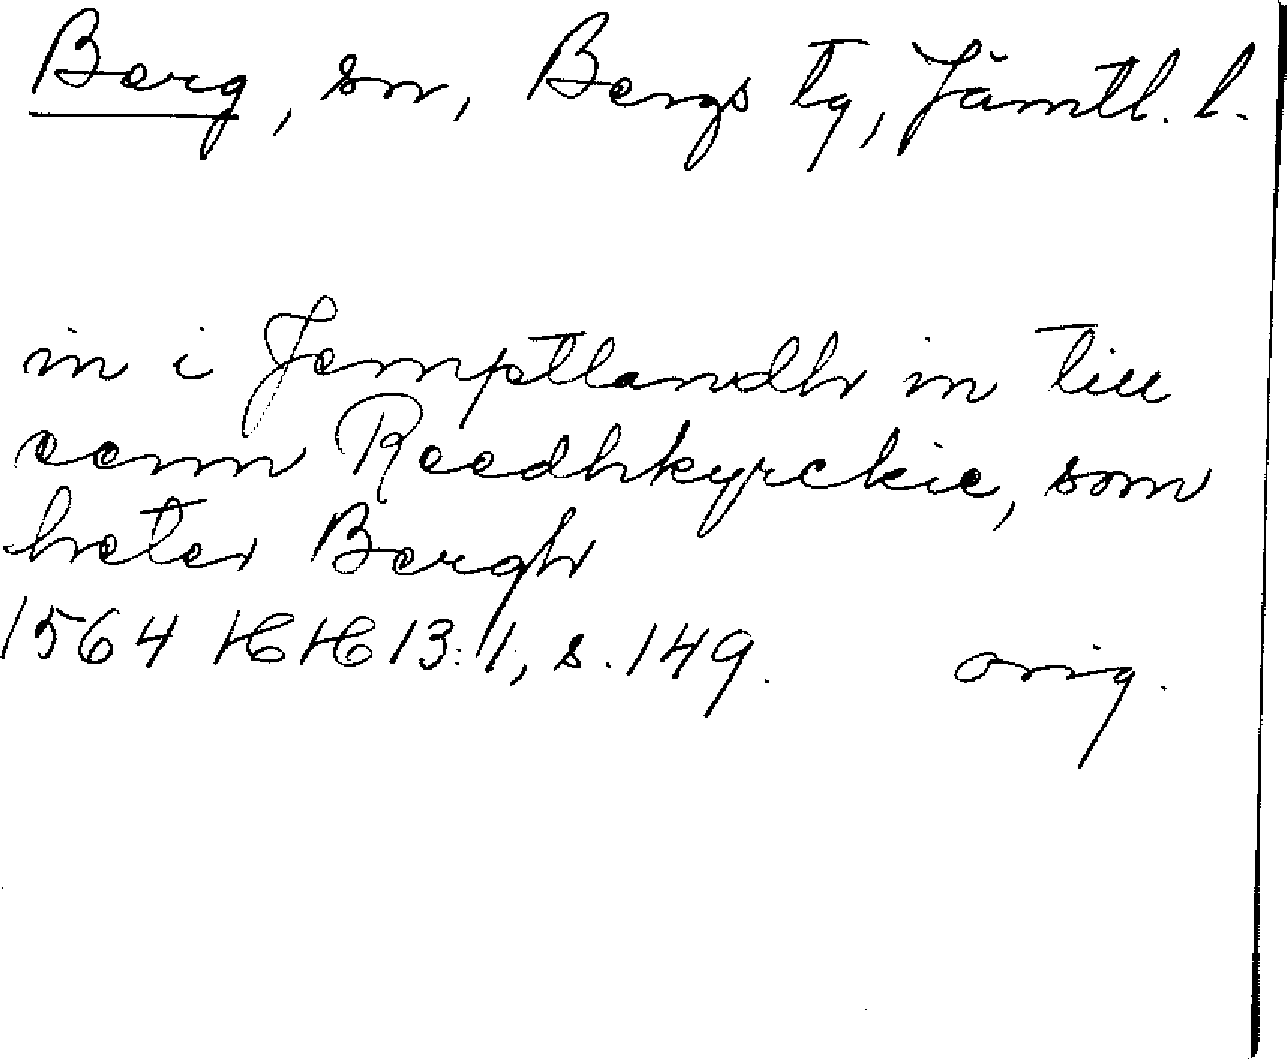 Berg, sn, Bergs tg, Jämtl. l.
in i Jemptlandh in till
eenn Reedhkyrckie, som
heter Bergh
1564 HH 13:1, s. 149. orig.